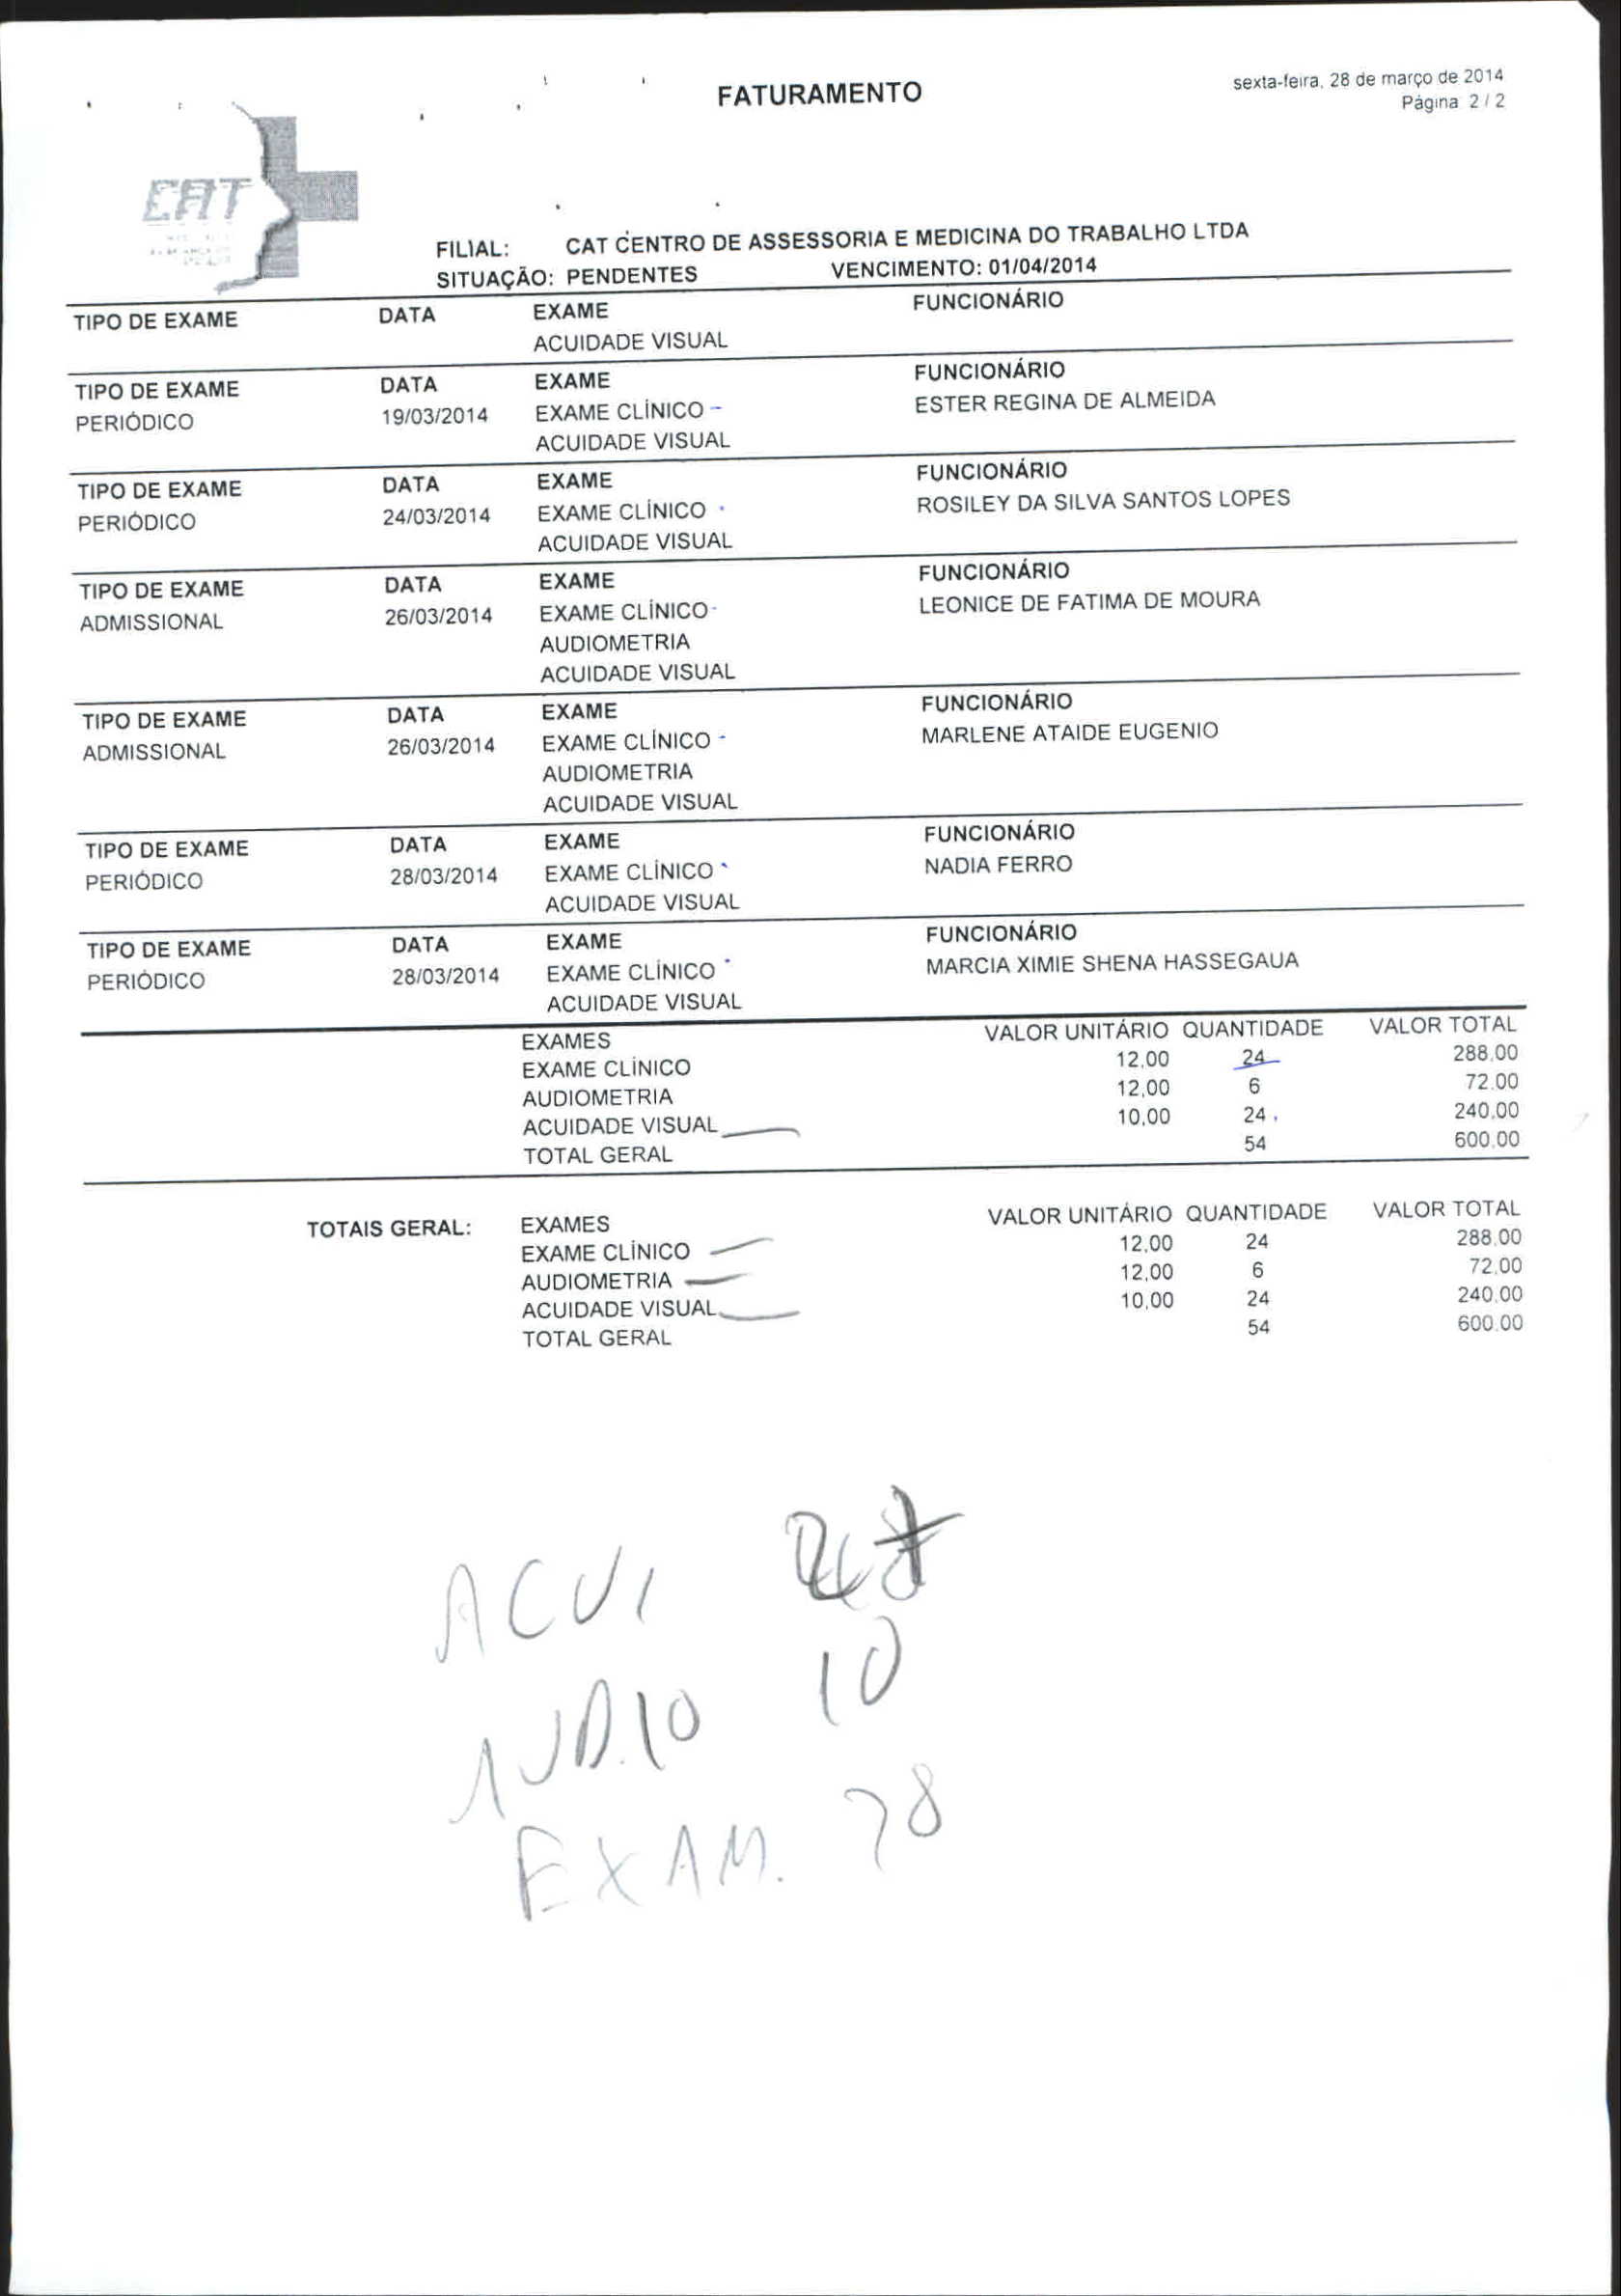 FATURAMENTO
sexta-feira, 28 de março de 2014
Página 2 / 2
CAT
FILIAL: CAT CENTRO DE ASSESSORIA E MEDICINA DO TRABALHO LTDA
SITUAÇÃO: PENDENTES VENCIMENTO: 01/04/2014
TIPO DE EXAME DATA EXAME FUNCIONÁRIO
ACUIDADE VISUAL
TIPO DE EXAME DATA EXAME FUNCIONÁRIO
PERIÓDICO 19/03/2014 EXAME CLÍNICO ESTER REGINA DE ALMEIDA
ACUIDADE VISUAL
TIPO DE EXAME DATA EXAME FUNCIONÁRIO
PERIÓDICO 24/03/2014 EXAME CLÍNICO ROSILEY DA SILVA SANTOS LOPES
ACUIDADE VISUAL
TIPO DE EXAME DATA EXAME FUNCIONÁRIO
ADMISSIONAL 26/03/2014 EXAME CLÍNICO LEONICE DE FATIMA DE MOURA
AUDIOMETRIA
ACUIDADE VISUAL
TIPO DE EXAME DATA EXAME FUNCIONÁRIO
ADMISSIONAL 26/03/2014 EXAME CLÍNICO MARLENE ATAIDE EUGENIO
AUDIOMETRIA
ACUIDADE VISUAL
TIPO DE EXAME DATA EXAME FUNCIONÁRIO
PERIÓDICO 28/03/2014 EXAME CLÍNICO NADIA FERRO
ACUIDADE VISUAL
TIPO DE EXAME DATA EXAME FUNCIONÁRIO
PERIÓDICO 28/03/2014 EXAME CLÍNICO MARCIA XIMIE SHENA HASSEGAUA
ACUIDADE VISUAL
EXAMES VALOR UNITÁRIO QUANTIDADE VALOR TOTAL
EXAME CLÍNICO 12,00 24 288,00
AUDIOMETRIA 12,00 6 72,00
ACUIDADE VISUAL 10,00 24 240,00
TOTAL GERAL 54 600,00
TOTAIS GERAL: EXAMES VALOR UNITÁRIO QUANTIDADE VALOR TOTAL
EXAME CLÍNICO 12,00 24 288,00
AUDIOMETRIA 12,00 6 72,00
ACUIDADE VISUAL 10,00 24 240,00
TOTAL GERAL 54 600,00
ACUI
AUDIO 10
EXAM. 28